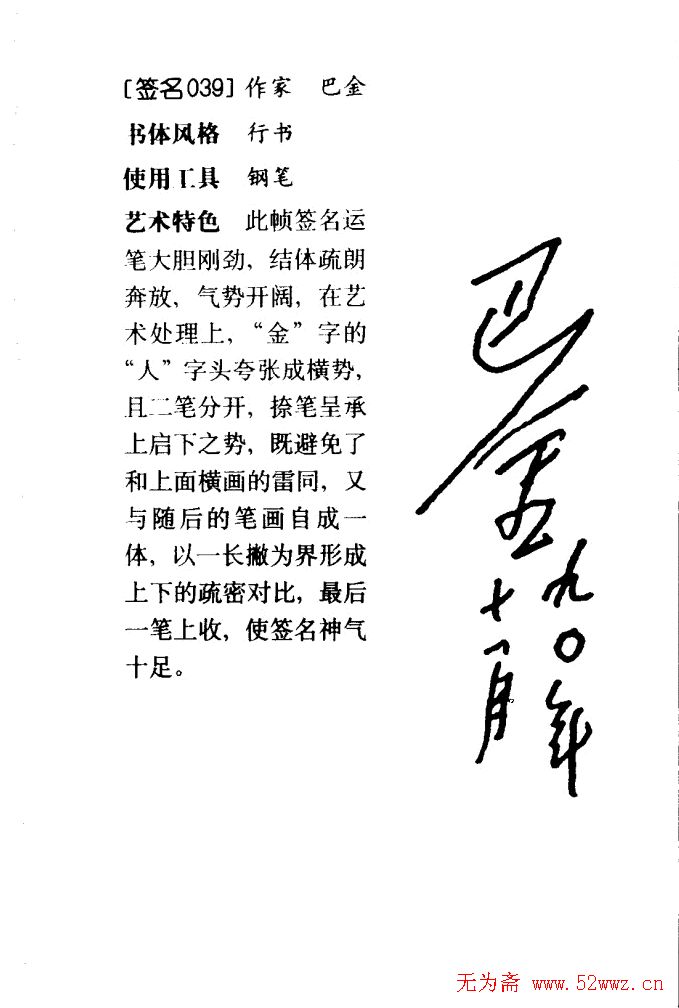 [签名039] 作家 巴金
书体风格 行书
使用工具 钢笔
艺术特色 此帧签名运
笔大胆刚劲，结体疏朗
奔放，气势开阔，在艺
术处理上，“金”字的
“人”字头夸张成横势，
且二笔分开，捺笔呈承
上启下之势，既避免了
和上面横画的雷同，又
与随后的笔画自成一
体，以一长撇为界形成
上下的疏密对比，最后
一笔上收，使签名神气
十足。
巴金
九〇年
十一月
无为斋 www.52wwz.cn